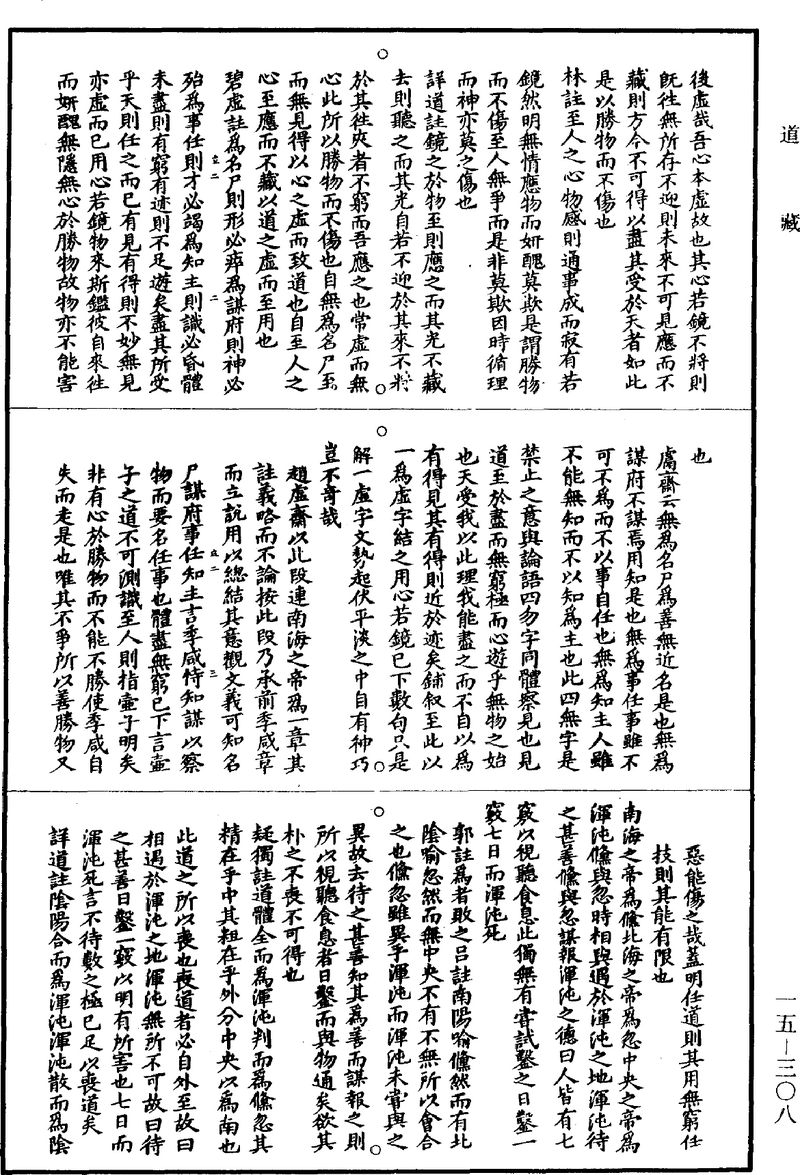 道藏
後虛哉吾心本虛故也其心若鏡不將則
既往無所存不迎則未來不可見應而不
藏則方今不可得以盡其受於天者如此
是以勝物而不傷也
林註至人之心物感則通事成而寂有若
鏡然明無情應物而妍醜莫欺是謂勝物
而不傷至人無爭而是非莫欺因時循理
而神亦莫之傷也
詳道註鏡之於物至則應之而其光不藏
去則聽之而其光自若不迎於其來不將
於其往來者不窮而吾應之也常虛而無
心此所以勝物而不傷也自無為名尸至
而無見得以心之虛而致道也自至人之
心至應而不藏以道之虛而至用也
碧虛註為名尸則形必瘁為謀府則神必
殆為事任則才必竭為知主則識必昏體
未盡則有窮有迹則不足遊矣盡其所受
乎天則任之而已有見有得則不妙無見
亦虛而已用心若鏡物來斯鑑彼自來往
而妍醜無隱無心於勝物故物亦不能害
也
鬳齋云無為名尸為善無近名是也無為
謀府不謀焉用知是也無為事任事雖不
可不為而不以事自任也無為知主人雖
不能無知而不以知為主也此四無字是
禁止之意與論語四勿字同體察見也見
道至於盡而無窮極而心遊乎無物之始
也天受我以此理我能盡之而不自以為
有得見其有得則近於迹矣鋪叙至此以
一為虛字結之用心若鏡已下數句只是
解一虛字文勢起伏平淡之中自有神巧
豈不奇哉
趙虛齋以此段連南海之帝為一章其
註義略而不論按此段乃承前季咸章
而立說用以總結其意觀文義可知名
尸謀府事任知主言季咸恃知謀以察
物而要名任事也體盡無窮已下言壺
子之道不可測識至人則指壺子明矣
非有心於勝物而不能不勝使季咸自
失而走是也唯其不爭所以善勝物又
惡能傷之哉蓋明任道則其用無窮任
技則其能有限也
南海之帝為儵北海之帝為忽中央之帝為
渾沌儵與忽時相與遇於渾沌之地渾沌待
之甚善儵與忽謀報渾沌之德曰人皆有七
竅以視聽食息此獨無有嘗試鑿之日鑿一
竅七日而渾沌死
郭註為者敗之呂註南陽喻儵然而有北
陰喻忽然而無中央不有不無所以會合
之也儵忽雖異乎渾沌而渾沌未嘗與之
異故去待之甚善知其為善而謀報之則
所以視聽食息者日鑿而與物通矣欲其
朴之不喪不可得也
疑獨註道體全而為渾沌判而為儵忽其
精在乎中其粗在乎外分中央以為南也
此道之所以喪也喪道者必自外至故曰
相遇於渾沌之地渾沌無所不可故曰待
之甚善日鑿一竅以明有所害也七日而
渾沌死言不待數之極已足以喪道矣
詳道註陰陽合而為渾沌渾沌散而為陰
一五—三〇八